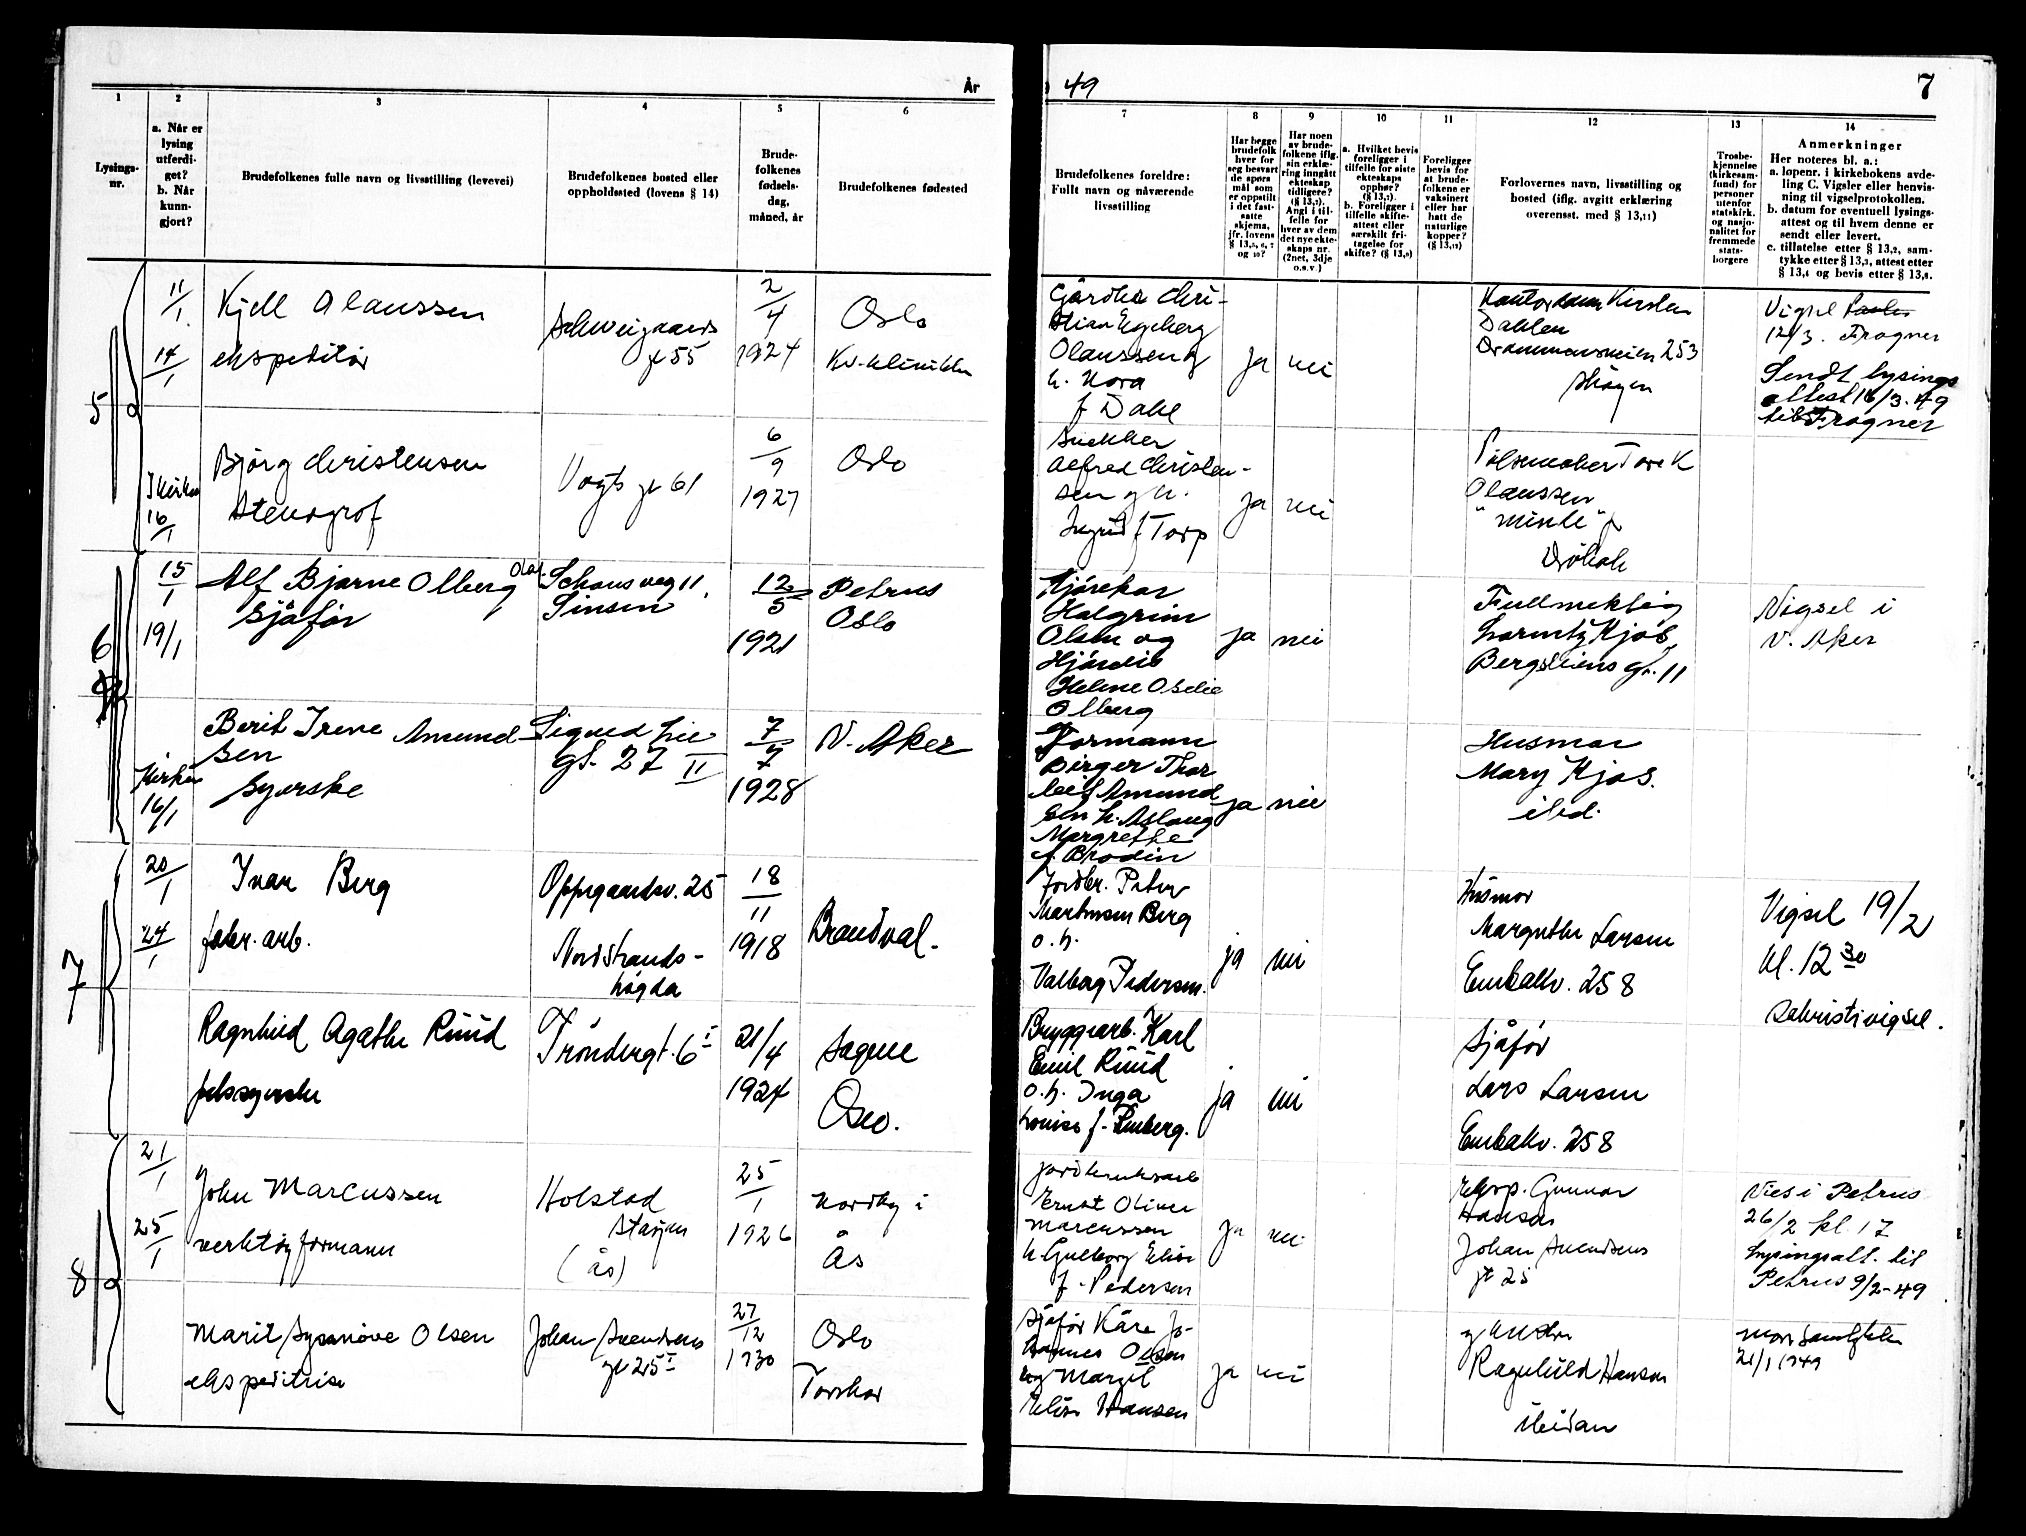 År
49
7
1
2
3
4
5
6
7
8
9
10
11
12
13
14
Lysings-
nr.
a. Når er
lysing
utferdi-
get?
b. Når
kunn-
gjort?
Brudefolkenes fulle navn og livsstilling (levevei)
Brudefolkenes bosted eller
oppholdssted (lovens § 14)
Brude-
folkenes
fødsels-
dag,
måned, år
Brudefolkenes fødested
Brudefolkenes foreldre:
Fullt navn og nåværende
livsstilling
Har begge
brudefolk
hver for
seg besvart
de spørs
mål som
er oppstilt
i det fast-
satte
skjema,
jfr. lovens
§ 13,5, 6, 7
og 10?
Har noen
av brude-
folkene iflg.
sin erklæ-
ring inngått
ekteskap
tidligere?
(§ 13,7).
Angi i til-
felle for
hver av dem
det nye ekte-
skaps nr.
(2net, 3dje
o.s.v.)
a. Hvilket bevis
foreligger i
tilfelle for siste
ekteskaps
opphør?
(§ 13,7).
b. Foreligger i
tilfelle skifte-
attest eller
særskilt fri-
tagelse for
skifte? (§ 13,8)
Foreligger
bevis for
at brude-
folkene er
vaksinert
eller har
hatt de
naturlige
kopper?
(§ 13,12)
Forlovernes navn, livsstilling og
bosted (iflg. avgitt erklæring
overensst. med § 13,11)
Trosbe-
kjennelse
(kirkesam-
fund) for
personer
utenfor
statskirk.
og nasjo-
nalitet for
fremmede
stats-
borgere
Anmerkninger
Her noteres bl. a.:
a. løpenr. i kirkebokens avde-
ling C. Vigsler eller henvis-
ning til vigselprotokollen.
b. datum for eventuell lysings-
attest og til hvem denne er
sendt eller levert.
c. tillatelse etter § 13,2, sam-
tykke etter § 13,3, attest etter
§ 13,4 og bevis etter § 13,6.
5
11/1
14/1
Kjell Olaussen
ekspeditør
Schweigaards
gt 55
2/4
1924
Oslo
Kv.klinikken
Christian Engeberg
Olaussen og
h. Nora
f Dahl
ja
nei
Kontordame Kirsten
Dahlen
Drammensveien 253
Skøyen
Vigsel
12/3. Frogner
Sendt lysings
attest 16/3.49
til Frogner
I kirken
16/1
Bjørg Christensen
Stenograf
Vogts gt 61
6/9
1927
Oslo
Snekker
Alfred Christen-
sen og h.
Ingrid f Torp
ja
nei
Pølsemaker Tore K
Olaussen
"Minde"
Drøbak
6
15/1
19/1
Alf Bjarne Olberg Olsen
Sjåfør
Schousveg 11,
Sinsen
12/5
1921
Petrus
Oslo
Kjørekar
Halgrim
Olsen og
Hjørdis
Helene Oselie
Olberg
ja
nei
Fullmektig
Lorentz Kjos,
Bergsliens gt. 11
Vigsel i
V. Aker
Kirken
16/1
Berit Irene Amund-
sen
Syerske
Sigurd Lie
gt. 27 II
7/7
1928
V. Aker
Formann
Birger Thor
leif Amund
sen h. Aslaug
Margrethe
f. Brodin
ja
nei
Husmor
Mary Kjos.
ibid.
7
20/1
24/1
Ivar Berg
fabr. arb.
Oppegaardsv. 25
Nordstrands-
høgda
18/11
1918
Brandval.
Jordbr. Peter
Martinsen Berg
o. h.
Valborg Pedersen.
ja
nei
Husmor
Margrethe Larsen
Enebakkv. 258
Vigsel 19/2
kl. 12 30
Sakristivigsel.
Ragnhild Agathe Ruud
pelssyerske
Trøndergt. 6 I
21/4
1924
Sagene
Oslo.
Bryggearb. Karl
Emil Ruud
o. h. Inga
Louise f.
ja
nei
Sjåfør
Lars Larsen
Enebakkv. 258
8
21/1
25/1
John Marcussen
verktøyformann
Holstad
Stasjon
(Ås)
25/1
1926
Nordby i
Ås
Jordbruksarb
Ernst Oliver
Marcussen
h Gulborg Elise
f. Pedersen
ja
nei
Eksp. Gunnar
Hansen
Johan Svendsens
gt 25
Vies i Petrus
26/2 kl 17
Lysingsatt. til
Petrus 9/2-49
Marit Synnøve Olsen
ekspeditrise
Johan Svendsens
gt 25 I
27/12
1930
Oslo
Torshov
Sjåfør Kåre Jo-
hannes Olsen
og Margit
Elise Hansen
ja
nei
Ragnhild Hansen
ibidem
Mors samtykke
21/1 1949